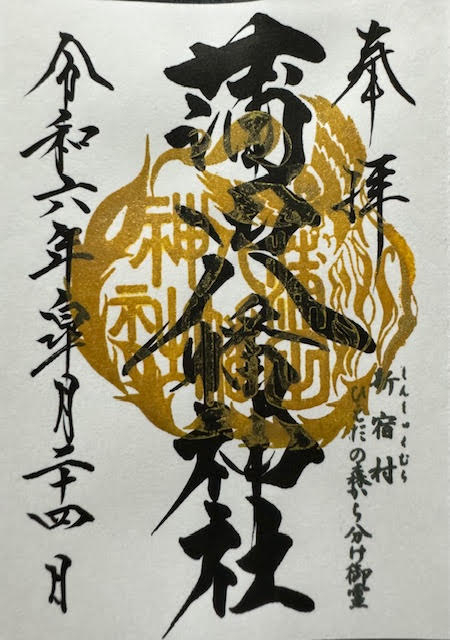 奉拝
しんしゅくむら
新宿村
ひえだの森から分け御霊
蒲田八幡神社
神社
令和六年皐月二十四日